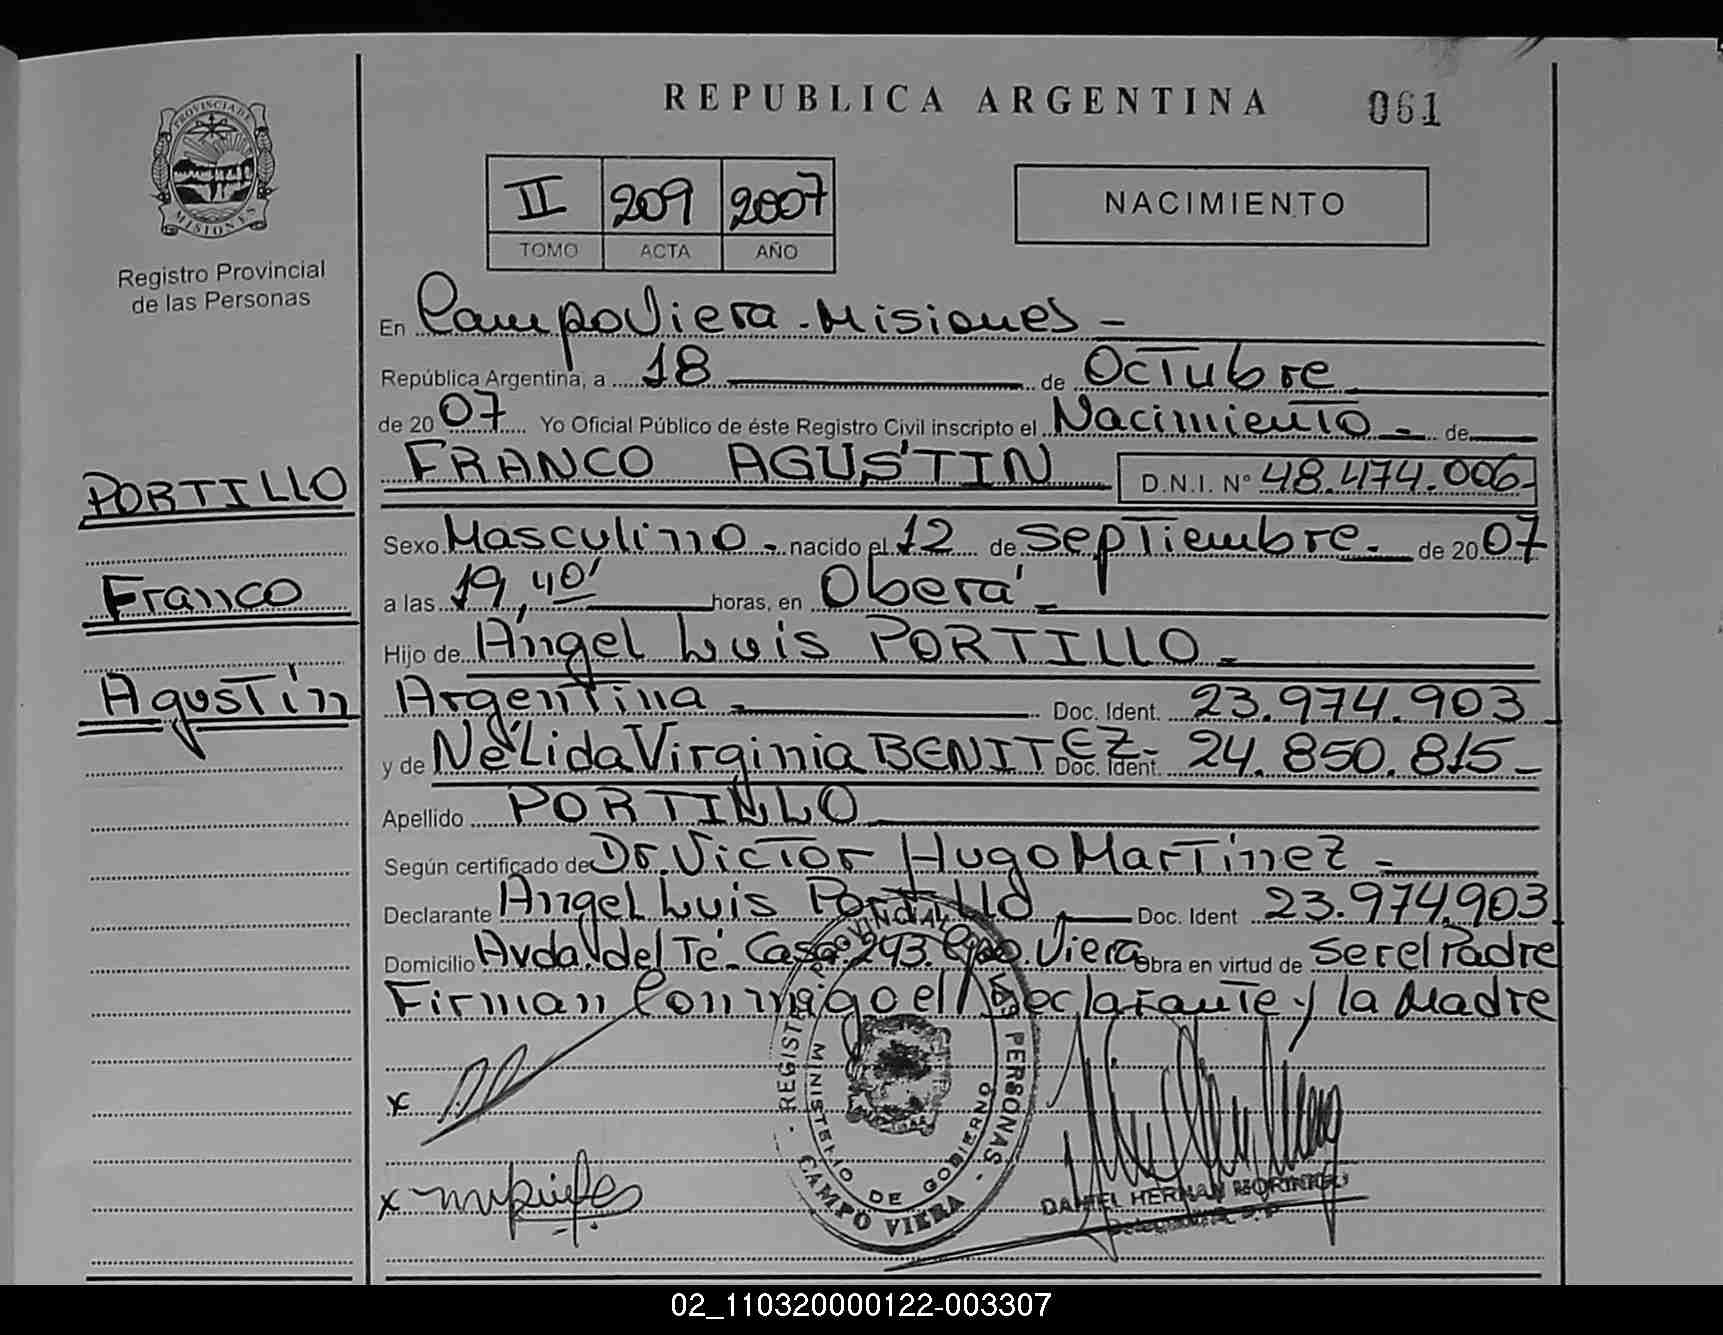 REPUBLICA ARGENTINA
061
PROVINCIA DE
MISIONES
Registro Provincial
de las Personas
II 209 2007
TOMO ACTA AÑO
NACIMIENTO
En Campo Viera - Misiones -
República Argentina, a 18 de Octubre
de 2007 Yo Oficial Público de éste Registro Civil inscripto el Nacimiento - de
FRANCO AGUSTÍN D.N.I. Nº 48.474.006-
PORTILLO
Sexo Masculino - nacido el 12 de Septiembre - de 2007
Franco
a las 19,40' horas, en Oberá -
Hijo de Ángel Luis PORTILLO -
Agustín
Argentina - Doc. Ident. 23.974.903
y de Nélida Virginia BENITEZ- Doc. Ident. 24.850.815-
Apellido PORTILLO
Según certificado de Dr. Victor Hugo Martínez -
Declarante Angel Luis Portillo, Doc. Ident 23.974.903
Domicilio Avda. del Té - Casa 243. Cpo. Viera Obra en virtud de ser el Padre
Firman conmigo el Declarante y la Madre
x
x
REGISTRO PROVINCIAL DE LAS PERSONAS -
MINISTERIO DE GOBIERNO
CAMPO VIERA
DANIEL HERNAN
02_110320000122-003307